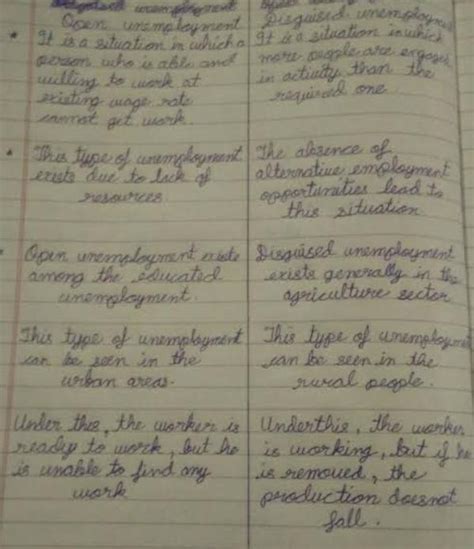 Open unemployment
It is a situation in which a
person who is able and
willing to work at
existing wage rate
cannot get work.
This type of unemployment
exists due to lack of
resources
Open unemployment exists
among the educated
unemployment.
This type of unemployment
can be seen in the
urban areas.
Under this, the worker is
ready to work, but he
is unable to find any
work
Disguised unemployment
It is a situation in which
more people are engaged
in activity than the
required one.
The absence of
alternative employment
opportunities lead to
this situation
Disguised unemployment
exists generally in the
agriculture sector
This type of unemployment
can be seen in the
rural people.
Underthis, the worker
is working, but if he
is removed, the
production doesnot
fall.